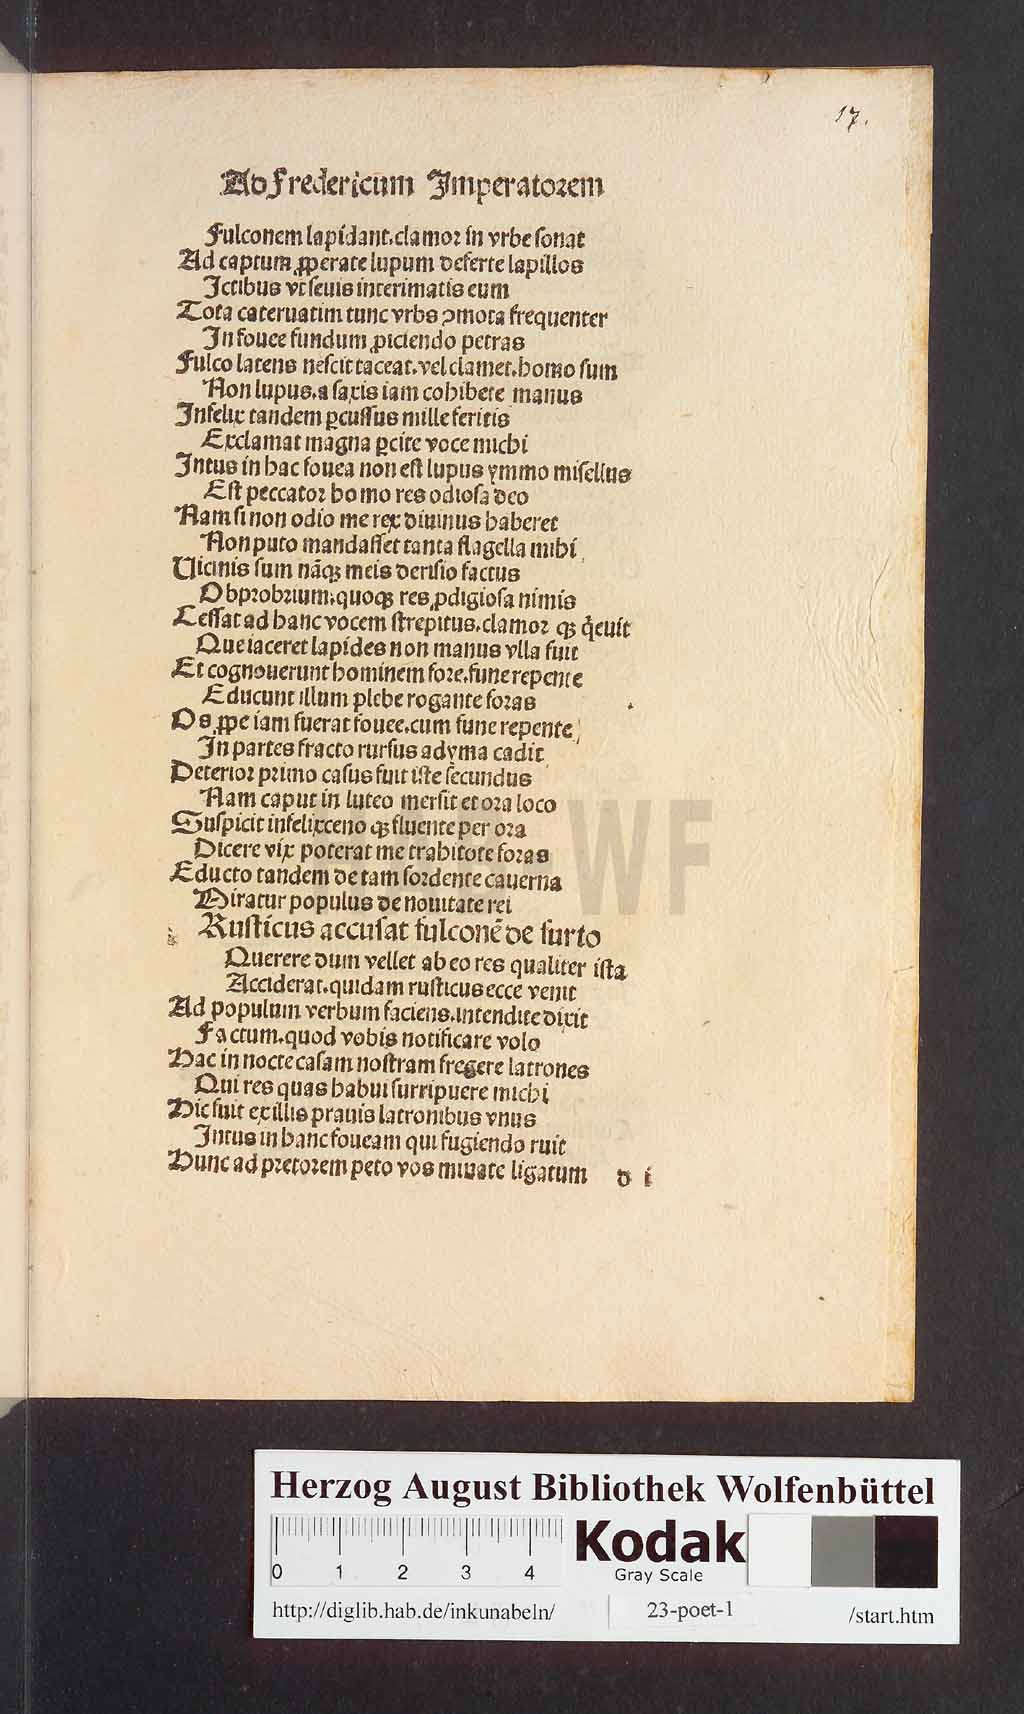 17.
Ad Fredericum Imperatorem
Fulconem lapidant. clamor in vrbe sonat
Ad captum ꝓperate lupum deferte lapillos
Ictibus vt seuis interimatis eum
Tota cateruatim tunc vrbs ꝯmota frequenter
In fouee fundum ꝓiciendo petras
Fulco latens nescit taceat. vel clamet. homo sum
Non lupus. a saxis iam cohibete manus
Infelix tandem ꝑcussus mille feritis
Exclamat magna ꝑcite voce michi
Intus in hac fouea non est lupus ymmo misellus
Est peccator homo res odiosa deo
Nam si non odio me rex diuinus haberet
Non puto mandasset tanta flagella mihi
Vicinis sum nāqꝫ meis derisio factus
Obprobrium. quoqꝫ res ꝓdigiosa nimis
Cessat ad hanc vocem strepitus. clamor qꝫ q̄euit
Que iaceret lapides non manus vlla fuit
Et cognouerunt hominem fore. fune repente
Educunt illum plebe rogante foras
Os ꝓpe iam fuerat fouee. cum fune repente
In partes fracto rursus ad yma cadit
Deterior primo casus fuit iste secundus
Nam caput in luteo mersit et ora loco
Suspicit infelix ceno qꝫ fluente per ora
Dicere vix poterat me trahitote foras
Educto tandem de tam sordente cauerna
Miratur populus de nouitate rei
Rusticus accusat fulconē de furto
Querere dum vellet ab eo res qualiter ista
Acciderat. quidam rusticus ecce venit
Ad populum verbum faciens. intendite dixit
Factum. quod vobis notificare volo
Hac in nocte casam nostram fregere latrones
Qui res quas habui surripuere michi
Hic fuit ex illis prauis latronibus vnus
Intus in hanc foueam qui fugiendo ruit
Hunc ad pretorem peto vos miuate ligatum d i
WF
Herzog August Bibliothek Wolfenbüttel
0 1 2 3 4
Kodak
Gray Scale
http://diglib.hab.de/inkunabeln/ 23-poet-1 /start.htm